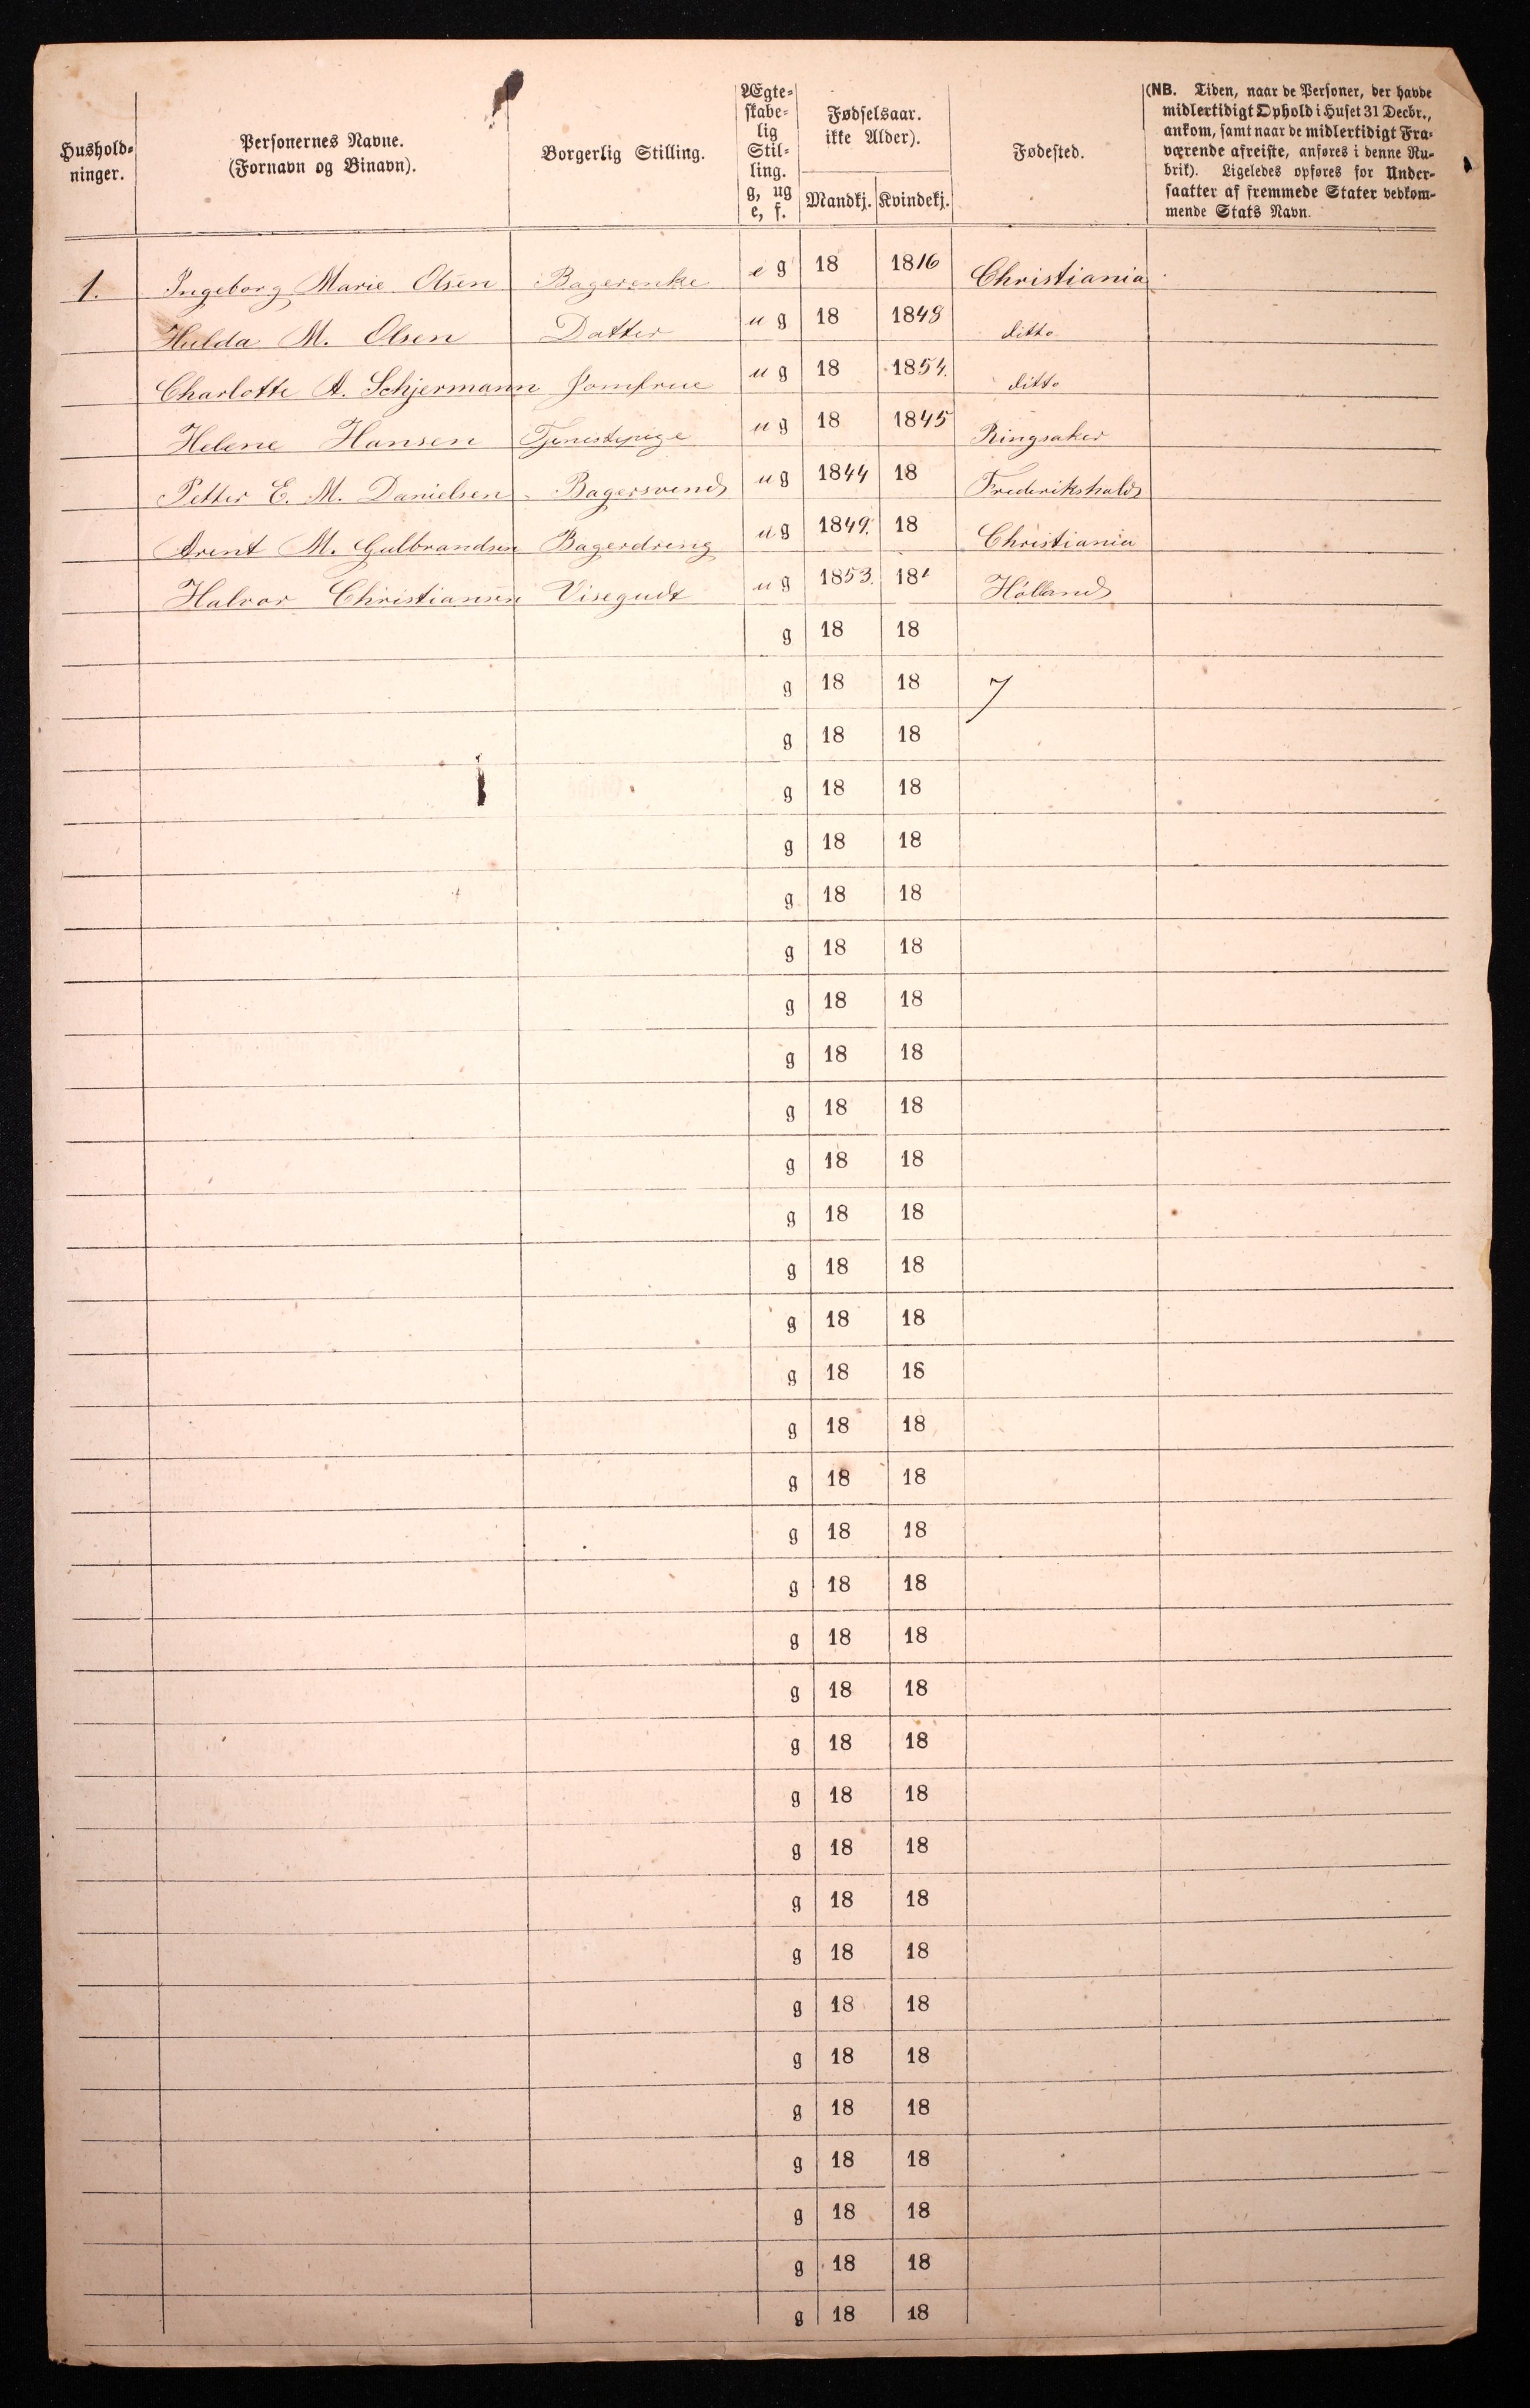 Hushold-
ninger.
Personernes Navne.
(Fornavn og Binavn).
Borgerlig Stilling.
Ægte-
skabe-
lig
Stil-
ling.
g, ug
e, f.
Fødselsaar.
ikke Alder).
Mandkj. Kvindekj.
Fødested.
(NB. Tiden, naar de Personer, der havde
midlertidigt Ophold i Huset 31 Decbr.,
ankom, samt naar de midlertidigt Fra-
værende afreiste, anføres i denne Ru-
brik). Ligeledes opføres for Under-
saatter af fremmede Stater vedkom-
mende Stats Navn.
1. Ingeborg Marie Olsen Bagerenke e g 18 1816 Christiania
Hulda M. Olsen Datter u g 18 1848 ditto
Charlotte A. Schjermann Jomfrue u g 18 1854. ditto
Helene Hansen Tjenistepige u g 18 1845 Ringsaker
Petter E. M. Danielsen Bagersvend u g 1844 18 Frederikshald
Arent M. Gulbrandsen Bagerdreng u g 1849. 18 Christiania
Halvor Christiansen Visegudt u g 1853. 18 Hölland
g 18 18
g 18 18 7
g 18 18
g 18 18
g 18 18
g 18 18
g 18 18
g 18 18
g 18 18
g 18 18
g 18 18
g 18 18
g 18 18
g 18 18
g 18 18
g 18 18
g 18 18
g 18 18
g 18 18
g 18 18
g 18 18
g 18 18
g 18 18
g 18 18
g 18 18
g 18 18
g 18 18
g 18 18
g 18 18
g 18 18
g 18 18
g 18 18
g 18 18